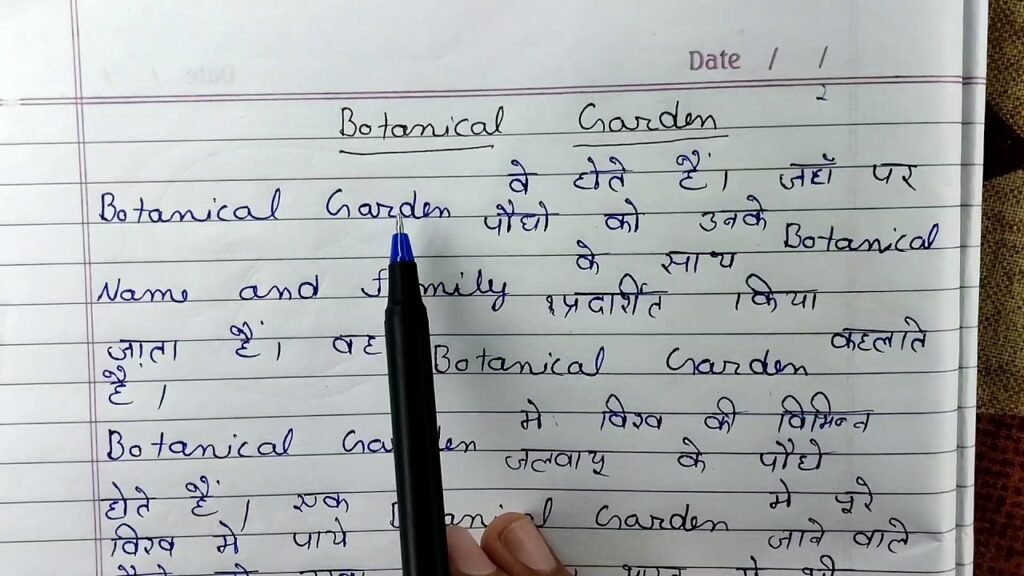 Date / /
Botanical Garden
Botanical Garden वे होते हैं। जहाँ पर
पौधो को उनके Botanical
Name and Family के साथ प्रदार्शित किया
जाता हैं। वह Botanical Garden कहलाते
हैं।
Botanical Garden मे विश्व की विभिन्न
जलवायू के पौधे
होते हैं। एक Botanical Garden मे पूरे
विश्व मे पाये जाने वाले